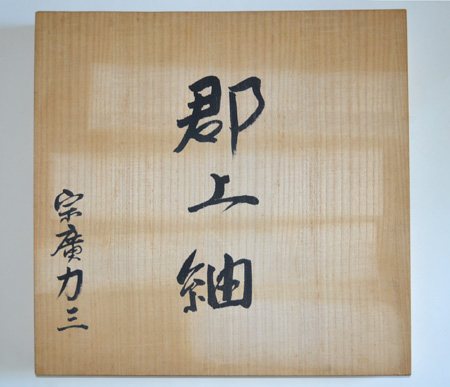 郡上紬
宗廣力三